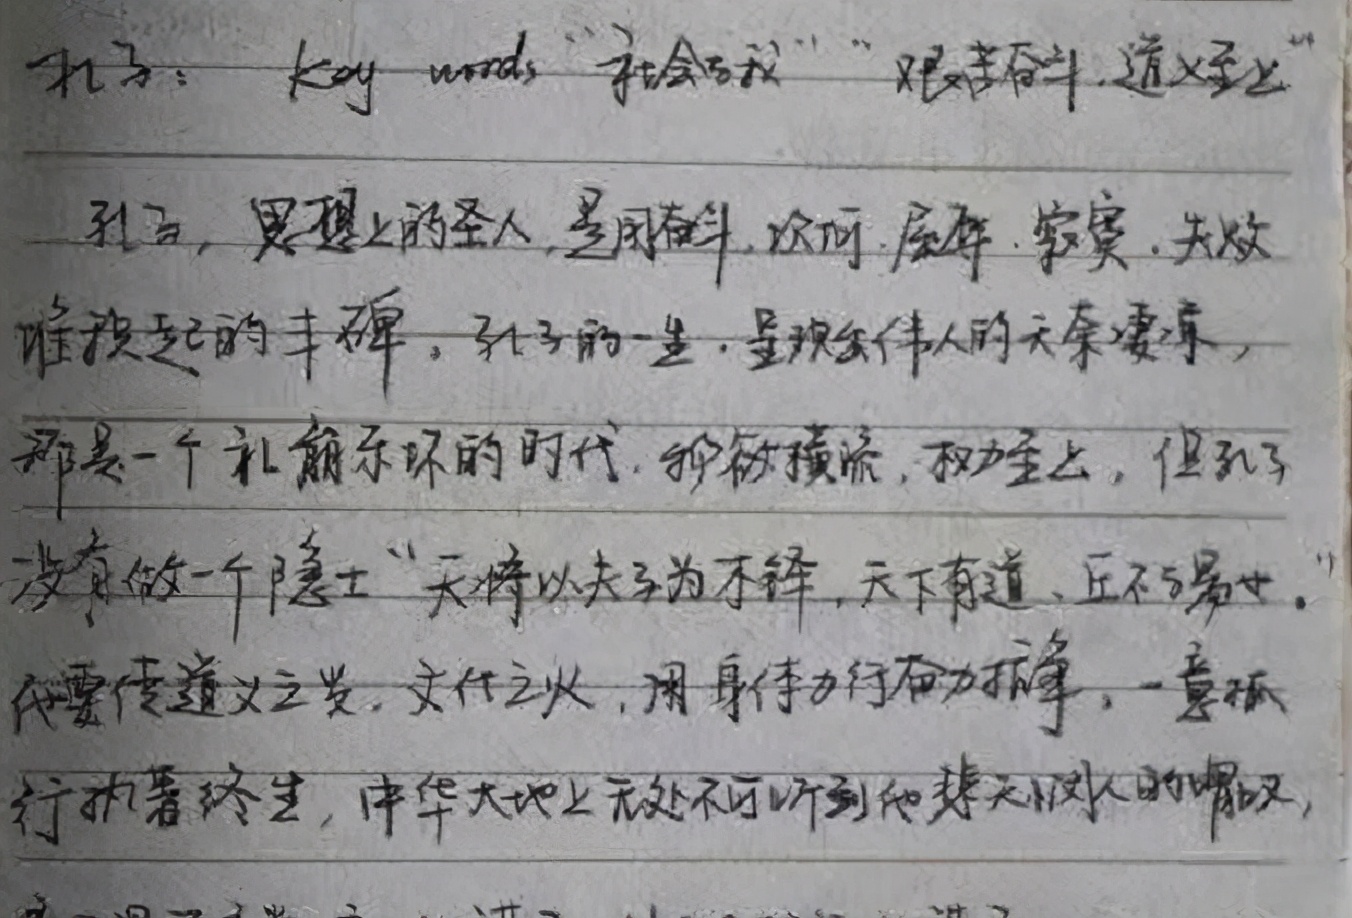 孔子： Key words “社会与我” “艰苦奋斗、道义至上”
孔子，思想上的圣人，是用奋斗、坎坷、屈辱、寂寞、失败
堆积起的丰碑。孔子的一生，呈现出伟人的天荒凄凉，
那是一个礼崩乐坏的时代，物欲横流，权力至上，但孔子
没有做一个隐士“天将以夫子为木铎，天下有道，丘不与易也。”
他要传道义之光，文化之火，用身体力行奋力抗争，一意孤
行执著终生，中华大地上无处不可听到他悲天悯人的喟叹，